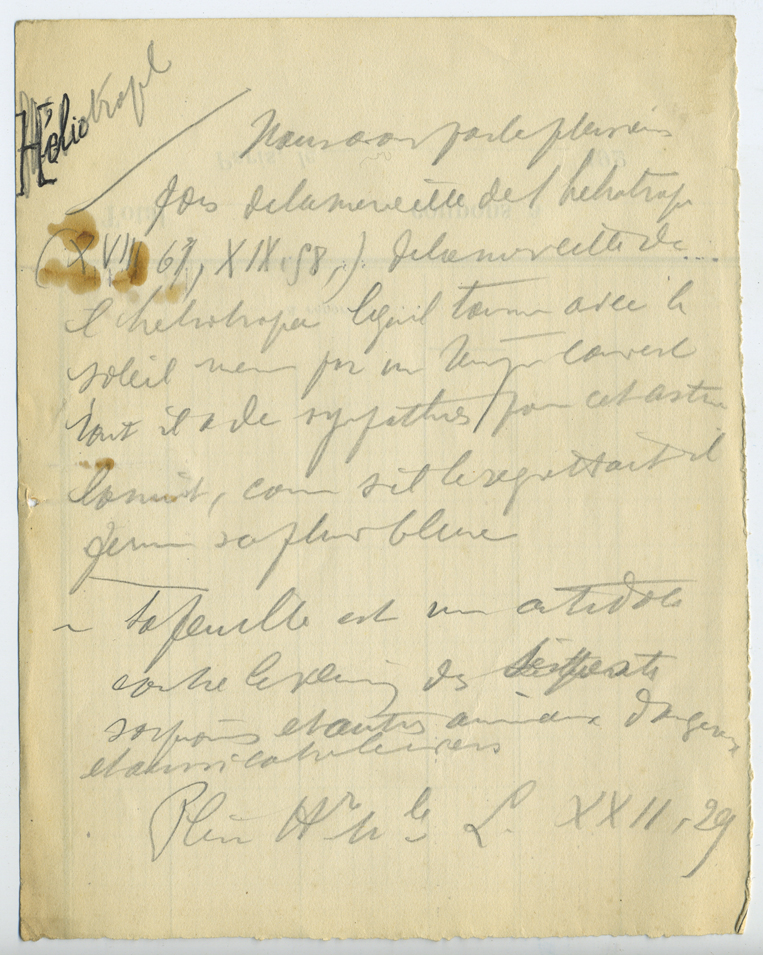 Héliotrope
Nous avons parlé plusieurs
fois de la merveille de l'heliotrope
(XVIII 67, XIX, 58,). de la merveille de
l'heliotrope lequel tourne avec le
soleil meme par un temps couvert
tant il a de sympathie pour cet astre
la nuit, comme s'il le regrettait il
ferme sa fleur bleue
~ Sa feuille est un antidote
contre le venin des
scorpions et autres animaux dangereux
et aussi
Pline Hre Nlle L. XXII, 29